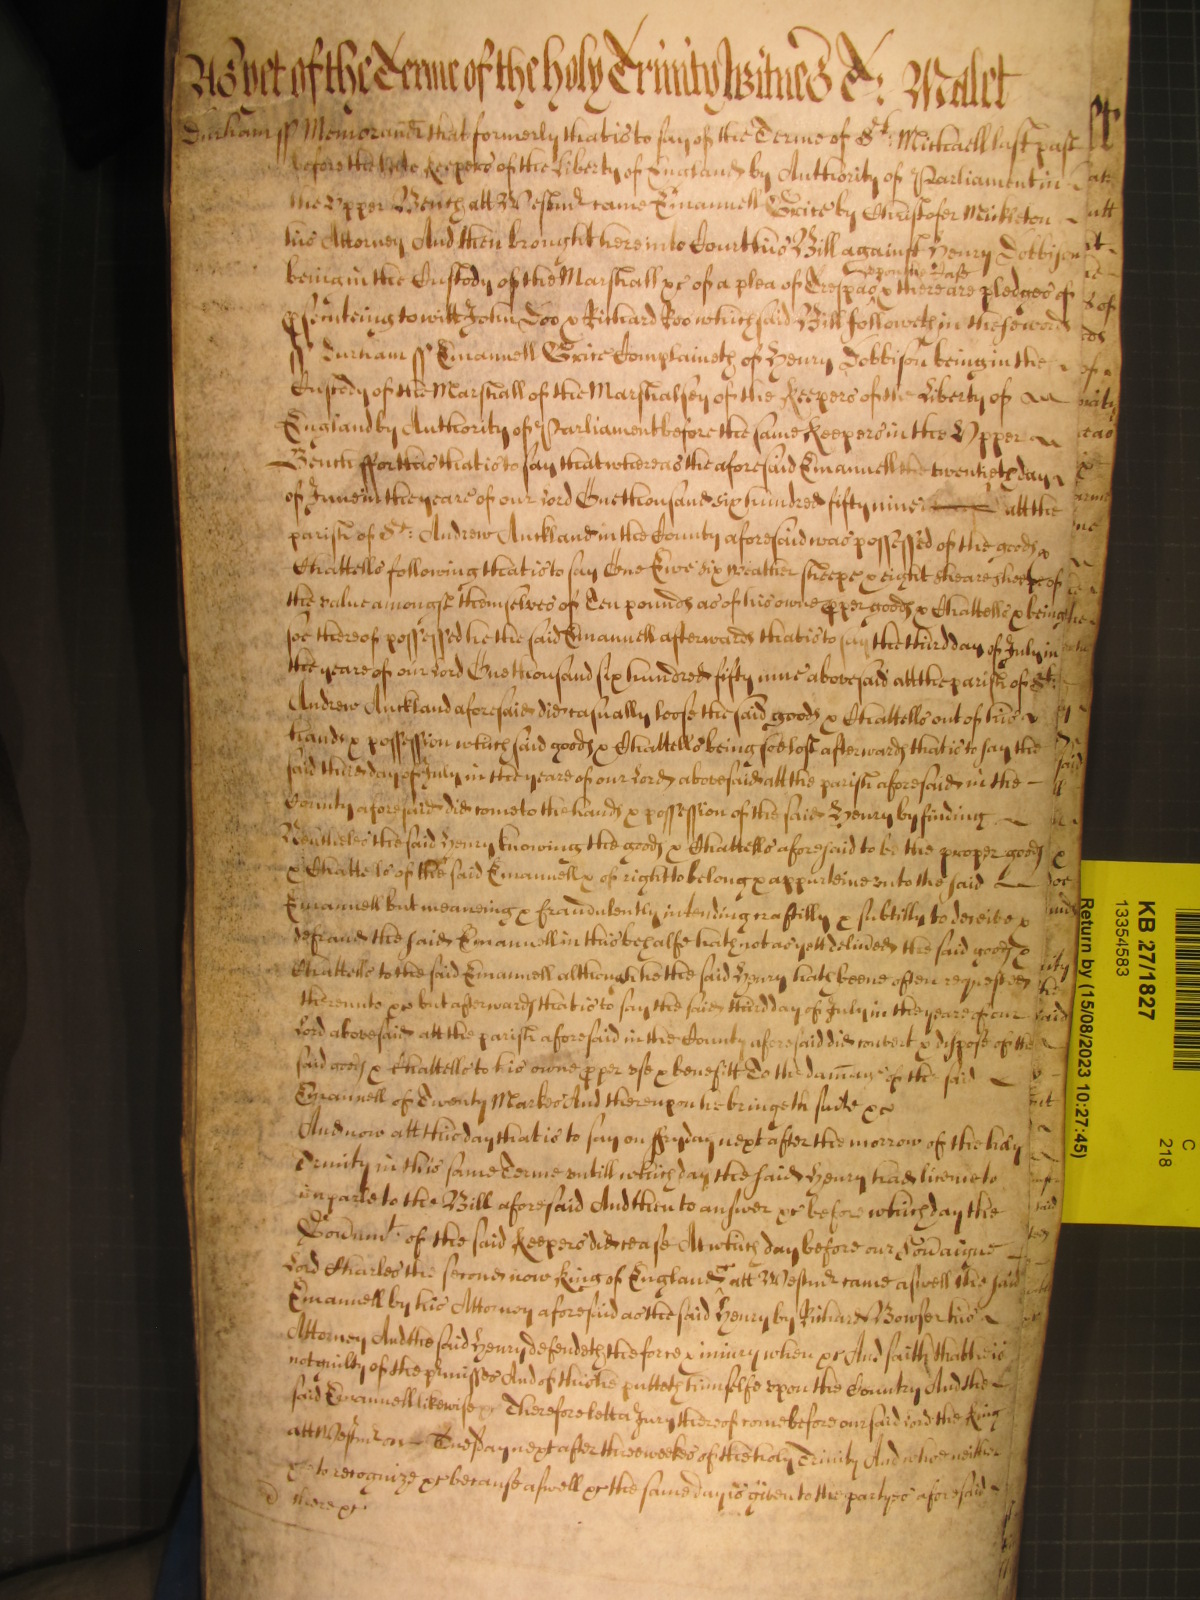 As yet of the Terme of the holy Trinity Witnes T: Malet
Durham ss Memorand that formerly that is to say of the Terme of St: Michaell last past
before the late Keepers of the Liberty of England by Authority of Parliament in
the Upper Bench att Westmr came Emanuell Grice by Christofer Mickleton
his Attorney And then brought here into Court his Bill against Henry Dobbison
being in the Custody of the Marshall &c of a plea of Trespas upon the Case & there are pledges of
prosecuteing to witt John Doo & Richard Roo which said Bill followeth in these words
ss Durham ss Emanuell Grice Complaineth of Henry Dobbison being in the
Custody of the Marshall of the Marshalsey of the Keepers of the Liberty of
England by Authority of Parliament before the same Keepers in the Upper
Bench ffor this that is to say that whereas the aforesaid Emanuell the twentieth day
of June in the yeare of our Lord One thousand six hundred fifty nine att the
parish of St: Andrew Auckland in the County aforesaid was possessed of the goods &
Chattells following that is to say One Ewe six weather sheepe & eight sheare sheepe of
the value amongst themselves of Ten pounds as of his owne pper goods & Chattells & being
soe thereof possessed he the said Emanuell afterwards that is to say the third day of July in
the yeare of our Lord One thousand six hundred fifty nine abovesaid att the parish of St:
Andrew Auckland aforesaid did casually loose the said goods & Chattells out of his
hands & possession which said goods & Chattells being soe lost afterwards that is to say the
said third day of July in the yeare of our Lord abovesaid att the parish aforesaid in the
County aforesaid did come to the hands & possession of the said Henry by finding
Neverthelesse the said Henry knowing the goods & Chattells aforesaid to be the proper goods
& Chattells of the said Emanuell & of right to belong & apperteine unto the said
Emanuell but meaneing & fraudulently intending craftilly & subtilly to deceive &
defraud the said Emanuell in this behalfe hath not as yett delivered the said goods &
Chattells to the said Emanuell although he the said Henry hath beene often requested
thereunto &c but afterwards that is to say the said third day of July in the yeare of our
Lord abovesaid att the parish aforesaid in the County aforesaid did convert & dispose of the
said goods & Chattells to his owne pper use & benefitt To the damage of the said
Emanuell of Twenty Markes And thereupon he bringeth suite &c
And now att this day that is to say on ffryday next after the morrow of the holy
Trinity in this same Terme untill which day the said Henry had licence to
imparle to the Bill aforesaid And then to answer &c before which day the
Governmt: of the said Keepers did cease At which day before our Soveraigne
Lord Charles the second now King of England &c att Westmr came aswell the said
Emanuell by his Attorney aforesaid as the said Henry by Richard Bowser his
Attorney And the said Henry defendeth the force & iniury when &c And saith that he is
not guilty of the pmisses And of this he putteth himselfe upon the Country And the
said Emanuell likewise &c Therefore lett a Jury thereof come before our said lord the King
att Westmr on Tuesday next after three weekes of the holy Trinity And who neither
&c to recognize &c because aswell &c the same day is given to the partyes aforesaid
there &c
KB 27/1827
13354583
Return by (15/08/2023 10:27:45)
C
218